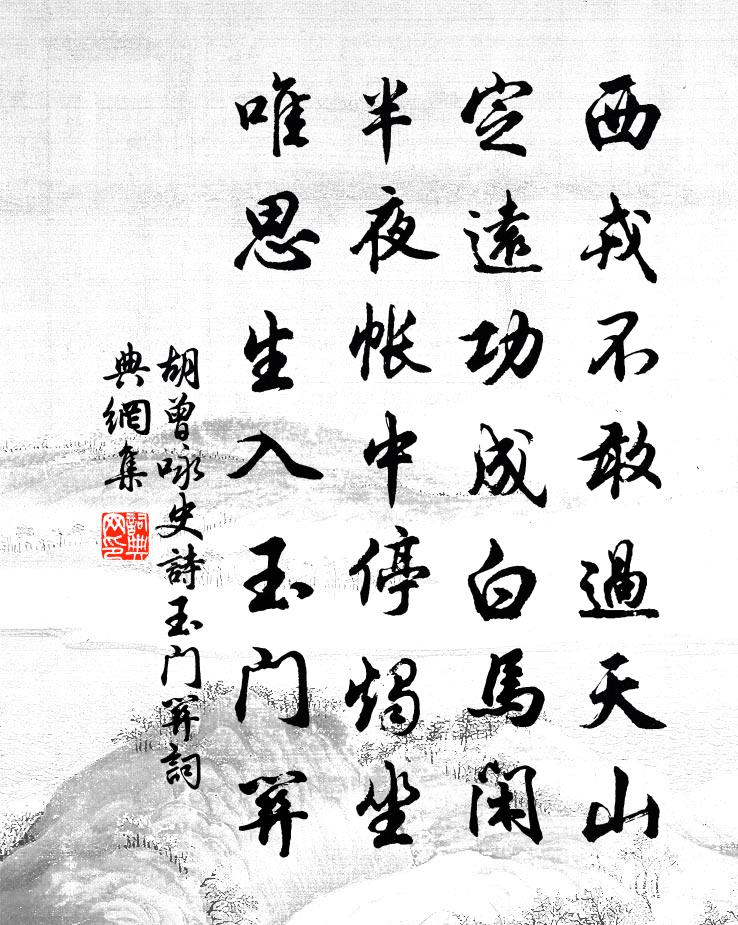 西戎不敢過天山
定遠功成白馬閑
半夜帳中停燭坐
唯思生入玉门關
胡曾咏史詩玉门關詞
典網集
詞典
网印